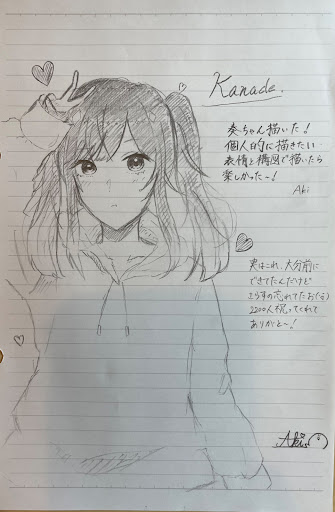 Kanade.
奏ちゃん描いた!
個人的に描きたい
表情と構図で描いたら
楽しかったー!
Aki
実はこれ、大分前に
できてたんだけど
さらすの忘れてたお(‘ω’)
2200人祝ってくれて
ありがと〜!
Aki